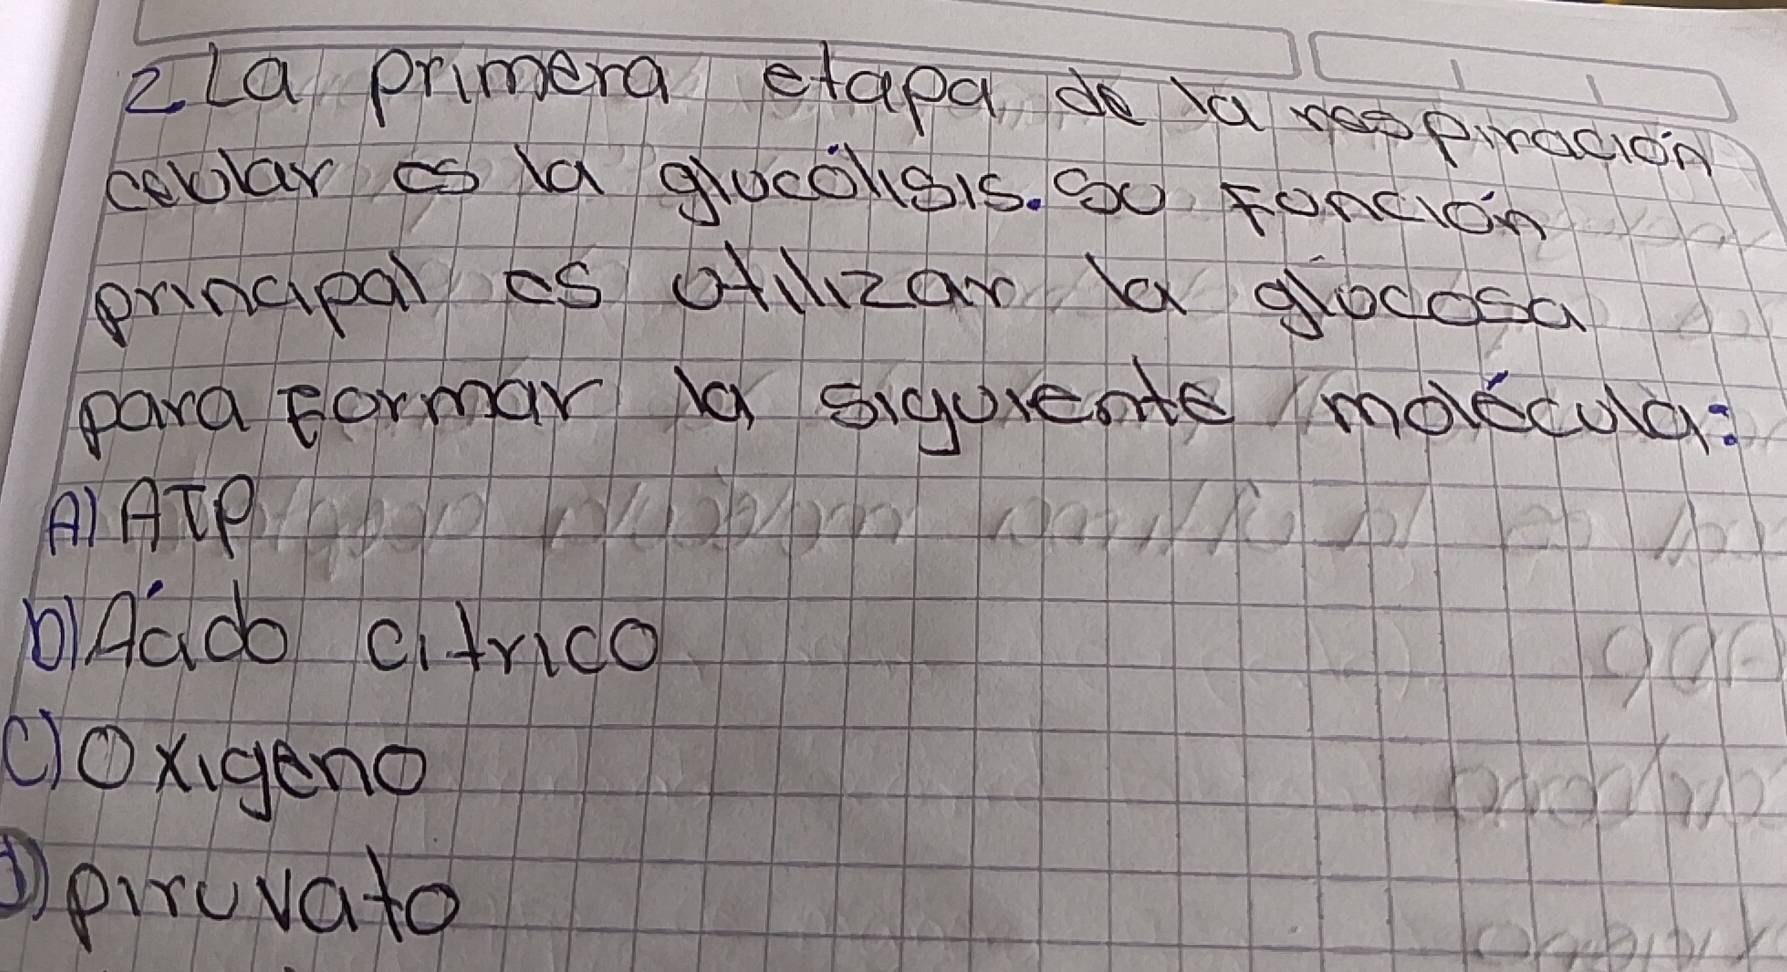 2. La primera etapa de la respiración
celular es la glucólisis. Su función
principal es utilizar la glucosa
para formar la siguiente molécula:
A) ATP
b) Ácido citrico
c) Oxigeno
D) piruvato